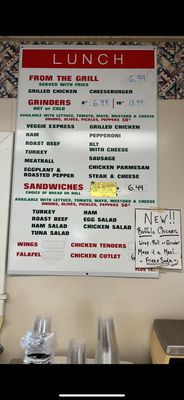 LUNCH
FROM THE GRILL 6.99
SERVED WITH FRIES
GRILLED CHICKEN CHEESEBURGER
GRINDERS 8" 6.99 16" 13.99
HOT or COLD
AVAILABLE WITH LETTUCE, TOMATO, MAYO, MUSTARD & CHEESE
ONIONS, OLIVES, PICKLES, PEPPERS 50¢
VEGGIE EXPRESS GRILLED CHICKEN
HAM PEPPERONI
ROAST BEEF BLT
WITH CHEESE
TURKEY
SAUSAGE
MEATBALL
CHICKEN PARMESAN
EGGPLANT &
ROASTED PEPPER STEAK & CHEESE
SANDWICHES 6.49
CHOICE OF BREAD OR ROLL
AVAILABLE WITH LETTUCE, TOMATO, MAYO, MUSTARD & CHEESE
ONIONS, OLIVES, PICKLES, PEPPERS 50¢
TURKEY HAM
ROAST BEEF EGG SALAD
HAM SALAD CHICKEN SALAD
TUNA SALAD
WINGS CHICKEN TENDERS
FALAFEL CHICKEN CUTLET
PLUS TAX
NEW!!
Buffalo Chicken
Wrap, Roll or Grinder
Make it a Meal
Fries & Soda